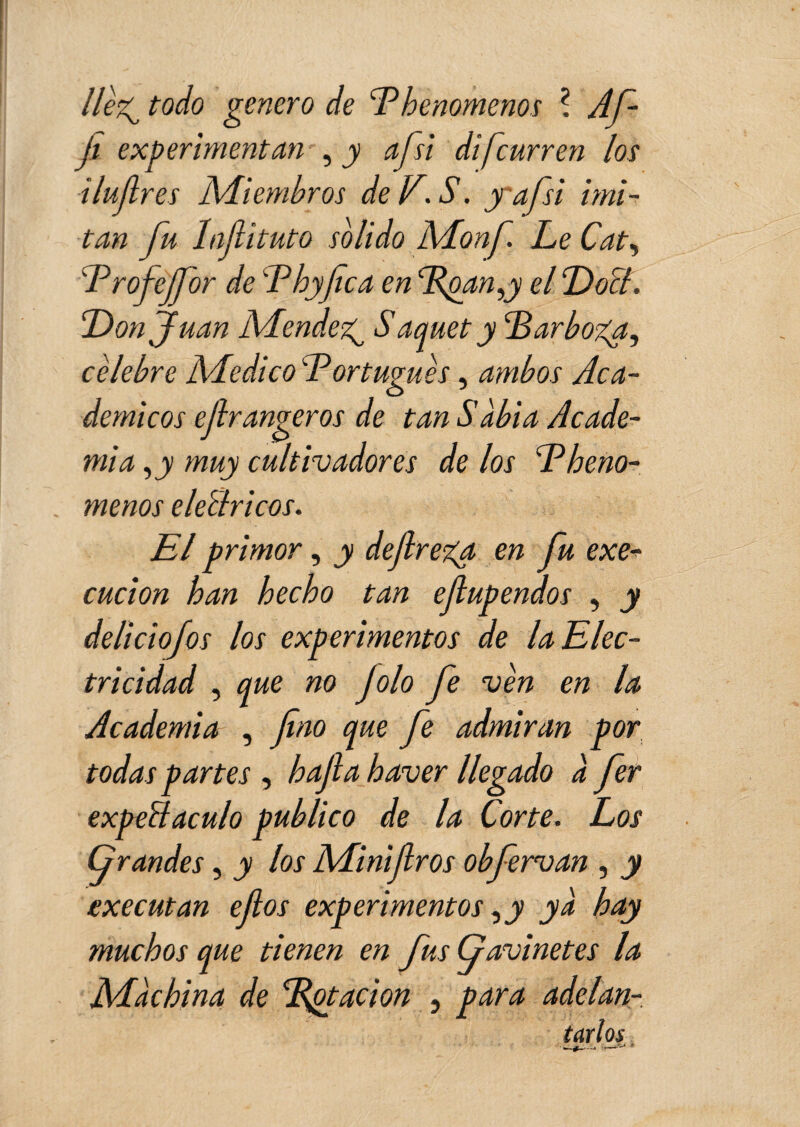 llèz todo genero de Phenomenos ? Aſ-
ſi experimentan , y aſsi diſcurren los
iluſtres Miembros de V. S. y aſsi imi-
tan ſu Inſtituto sòlido Monſ. Le Cat,
Profeſſor de Phyſica en Roan,y el Doct.
Don Juan Mendez Saquet y Barboza,
cèlebre Medico Portuguès , ambos Aca-
demicos eſtrangeros de tan Sàbia Acade-
mia ,y muy cultivadores de los Pheno-
menos electricos.
El primor , y deſtreza en ſu exe-
cucion han hecho tan eſtupendos , y
delicioſos los experimentos de la Elec-
tricidad , que no ſolo ſe vèn en la
Academia , ſino que ſe admiran por
todas partes , haſta haver llegado à ſer
expectaculo publico de la Corte. Los
Grandes , y los Miniſtros obſervan , y
executan eſtos experimentos ,y yà hay
muchos que tienen en ſus Gavinetes la
Màchina de Rotacion , para adelan-
tarlos